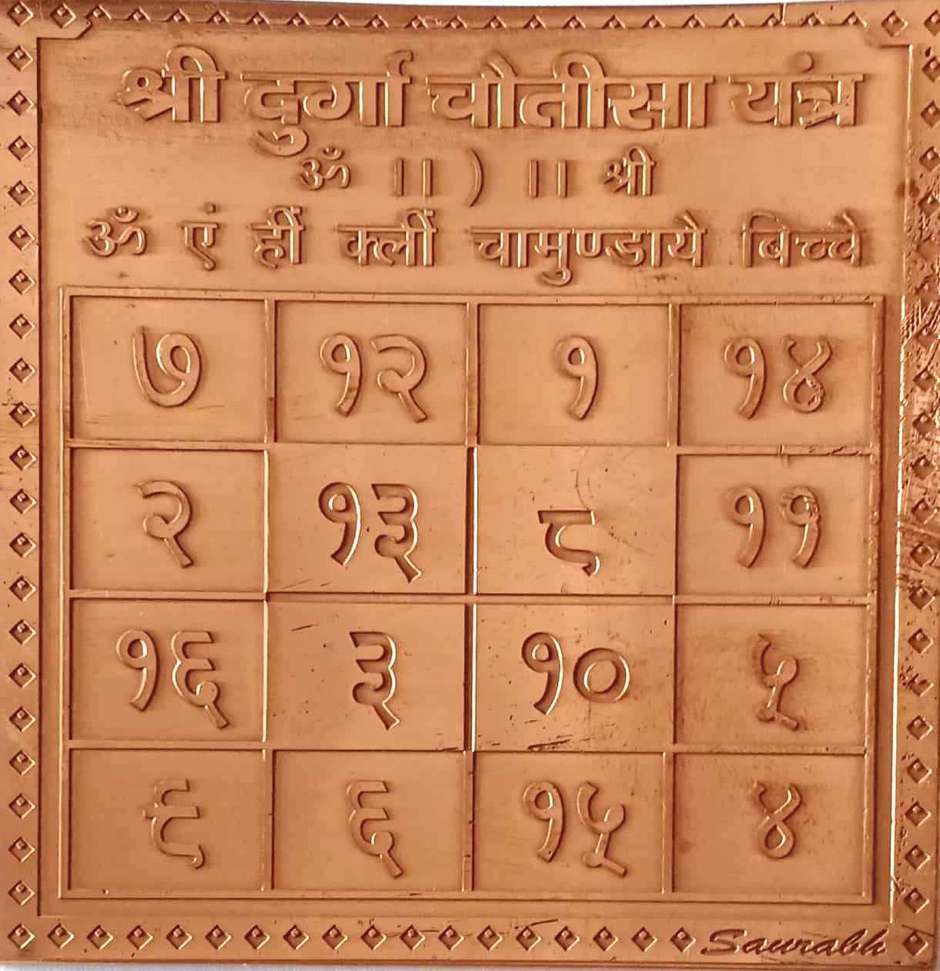 श्री दुर्गा चौतीसा यंत्र
ॐ ।। ) ।। श्री
ॐ एं ह्रीं क्लीं चामुण्डायै बिच्चे
७ १२ १ १४
२ १३ ८ ११
१६ ३ १० ५
९ ६ १५ ४
Saurabh